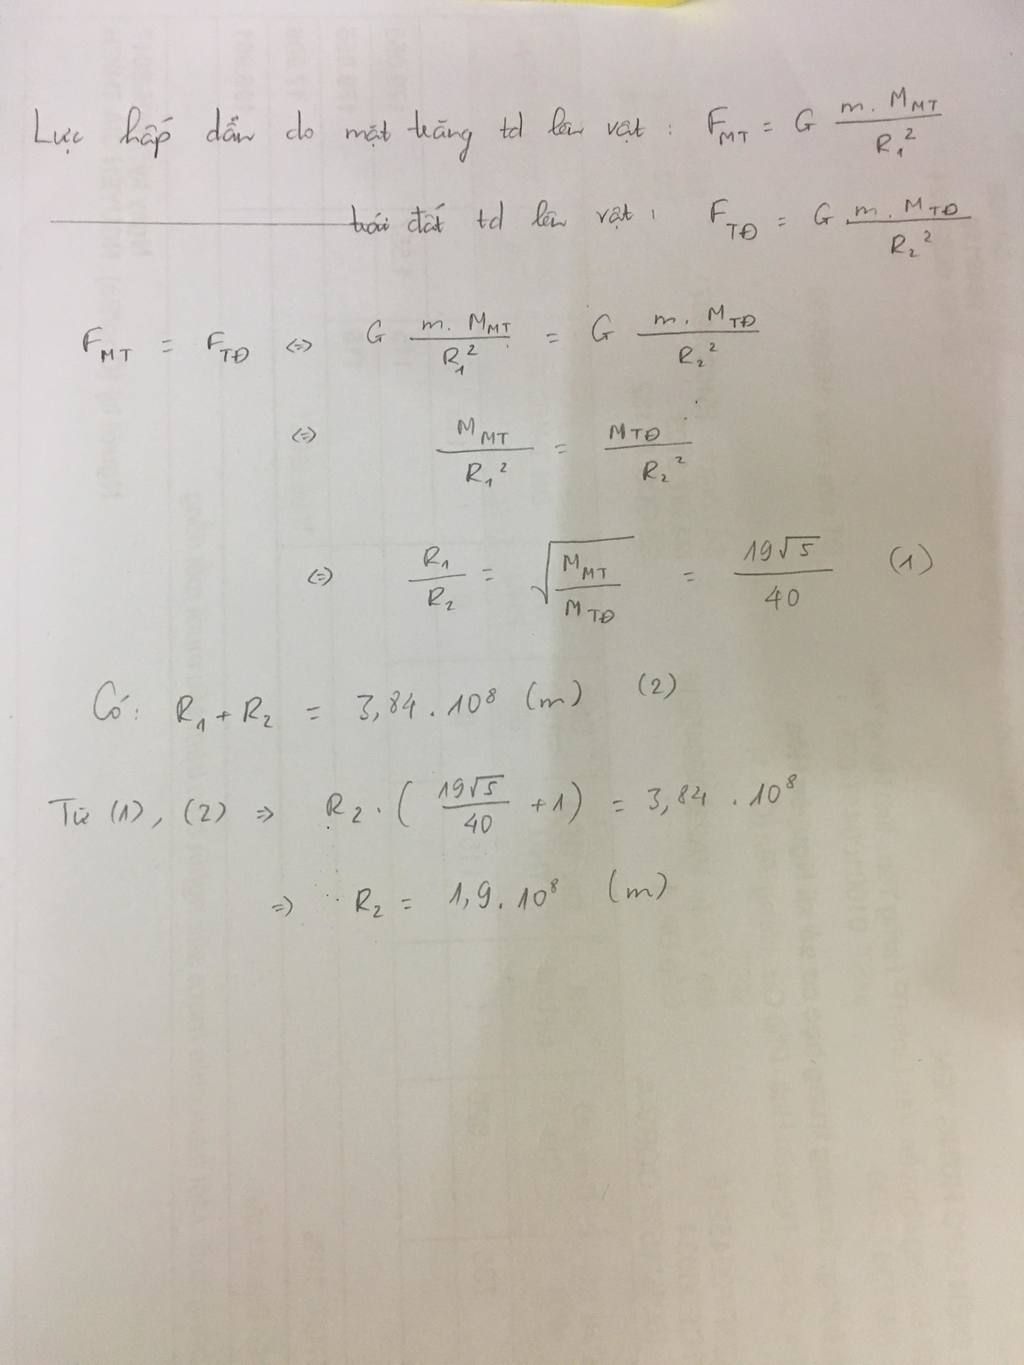 Lực hấp dẫn do mặt trăng td lên vật : F_MT = G m. M_MT / R₁²
trái đất td lên vật : F_TĐ = G m. M_TĐ / R₂²
F_MT = F_TĐ <=> G m. M_MT / R₁² = G m. M_TĐ / R₂²
<=> M_MT / R₁² = M_TĐ / R₂²
<=> R₁ / R₂ = √(M_MT / M_TĐ) = 19√5 / 40 (1)
Có: R₁ + R₂ = 3,84 . 10⁸ (m) (2)
Từ (1), (2) => R₂ . ( 19√5 / 40 + 1) = 3,84 . 10⁸
=> R₂ = 1,9 . 10⁸ (m)